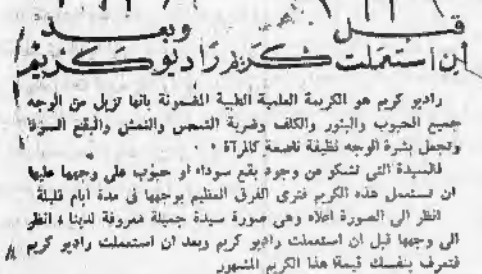 قبل وبعد
أن استعملت كريم راديو كريم
راديو كريم هو الكريمة العلمية الطبية المضمونة بانها تزيل من الوجه
جميع الحبوب والبثور والكلف وضربة الشمس والنمش والبقع السوداء
وتجعل بشرة الوجه نظيفة ناصعة كالمرآة ٠ ٠
فالسيدة التى تشكو من وجود بقع سوداء او حبوب على وجهها عليها
ان تستعمل هذه الكريم فترى الفرق العظيم بوجهها فى مدة ايام قليلة
انظر الى الصورة اعلاه وهى صورة سيدة جميلة معروفة لدينا ، انظر
الى وجهها قبل ان استعملت راديو كريم وبعد ان استعملت راديو كريم
فتعرف بنفسك قيمة هذا الكريم المشهور